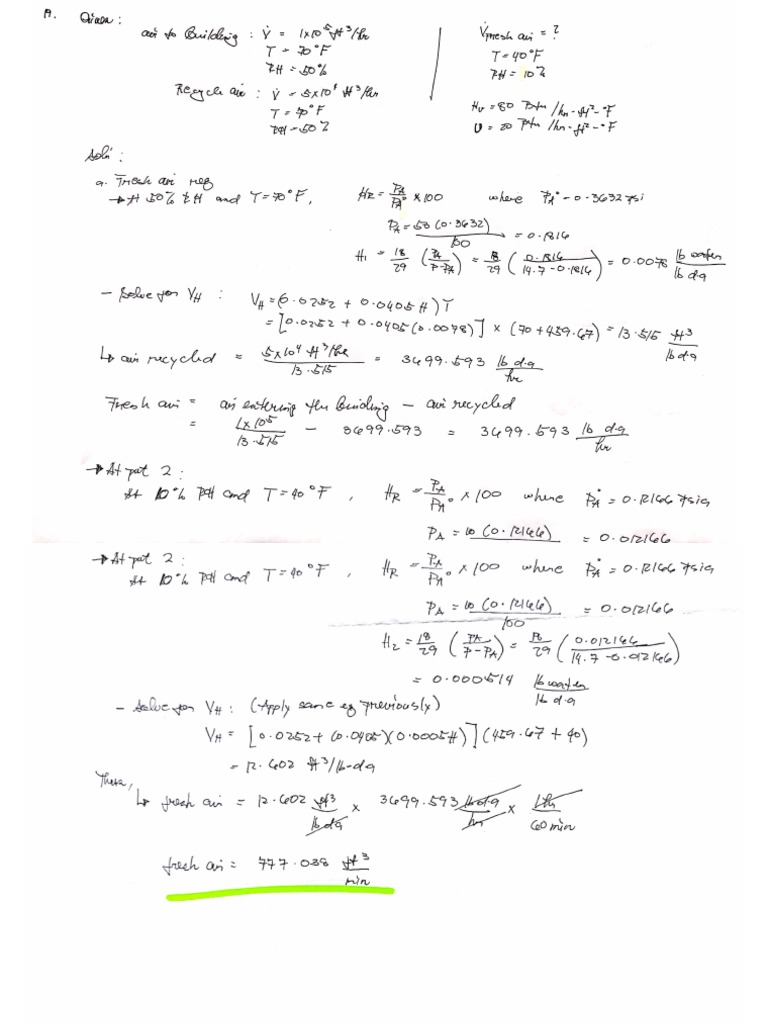 A. Given:
air to Building: V̇ = 1x10⁵ ft³/hr
T = 70°F
RH = 50%
Recycle air: V̇ = 5x10⁴ ft³/hr
T = 70°F
RH = 50%
V̇fresh air = ?
T = 40°F
RH = 10%
Hv = 80 Btu/hr-ft²-°F
U = 20 Btu/hr-ft²-°F
Soln:
a. Fresh air req
→ At 50% RH and T = 70°F, HR = PA/PA° x 100 where PA° - 0.3632 psi
PA = 50(0.3632)/100 = 0.1816
H1 = 18/29 (PA/P-PA) = 18/29 (0.1816/14.7-0.1816) = 0.0078 lb water/lb da
- Solve for VH: VH = (0.0252 + 0.0405H)T
= [0.0252 + 0.0405(0.0078)] x (70+459.67) = 13.515 ft³/lb da
↳ air recycled = 5x10⁴ ft³/hr / 13.515 = 3699.593 lb da/hr
Fresh air = air entering the building - air recycled
= 1x10⁵/13.515 - 3699.593 = 3699.593 lb da/hr
→ At pat 2:
At 10% RH and T = 40°F, HR = PA/PA° x 100 where PA° = 0.12166 psia
PA = 10(0.12166) = 0.012166
→ At pat 2:
At 10% RH and T = 40°F, HR = PA/PA° x 100 where PA° = 0.12166 psia
PA = 10(0.12166)/100 = 0.012166
H2 = 18/29 (PA/P-PA) = 18/29 (0.012166/14.7-0.012166)
= 0.000514 lb water/lb da
- Solve for VH: (Apply same eq previously)
VH = [0.0252 + (0.0405)(0.00051)](459.67 + 40)
= 12.602 ft³/lb-da
Then,
↳ fresh air = 12.602 ft³/lb da x 3699.593 lb da/hr x 1 hr/60 min
fresh air = 777.038 ft³/min